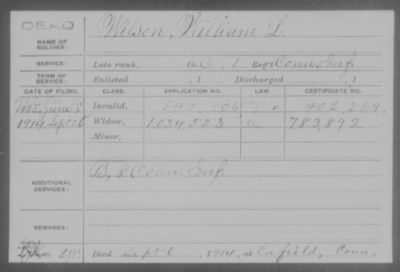 DEMO
NAME OF SOLDIER: Wilson, William L.
SERVICE: Late rank, Co. G, 1 Reg't Conn Inf
TERM OF SERVICE: Enlisted , 1 Discharged , 1
DATE OF FILING. CLASS. APPLICATION NO. LAW. CERTIFICATE NO.
Invalid, 402,269
1914 Sept 26 Widow, 1,034,523 a 783,892
Minor,
ADDITIONAL SERVICES: B, 8 Conn Inf
REMARKS:
Died Sept 6, 1914, at Enfield, Conn.